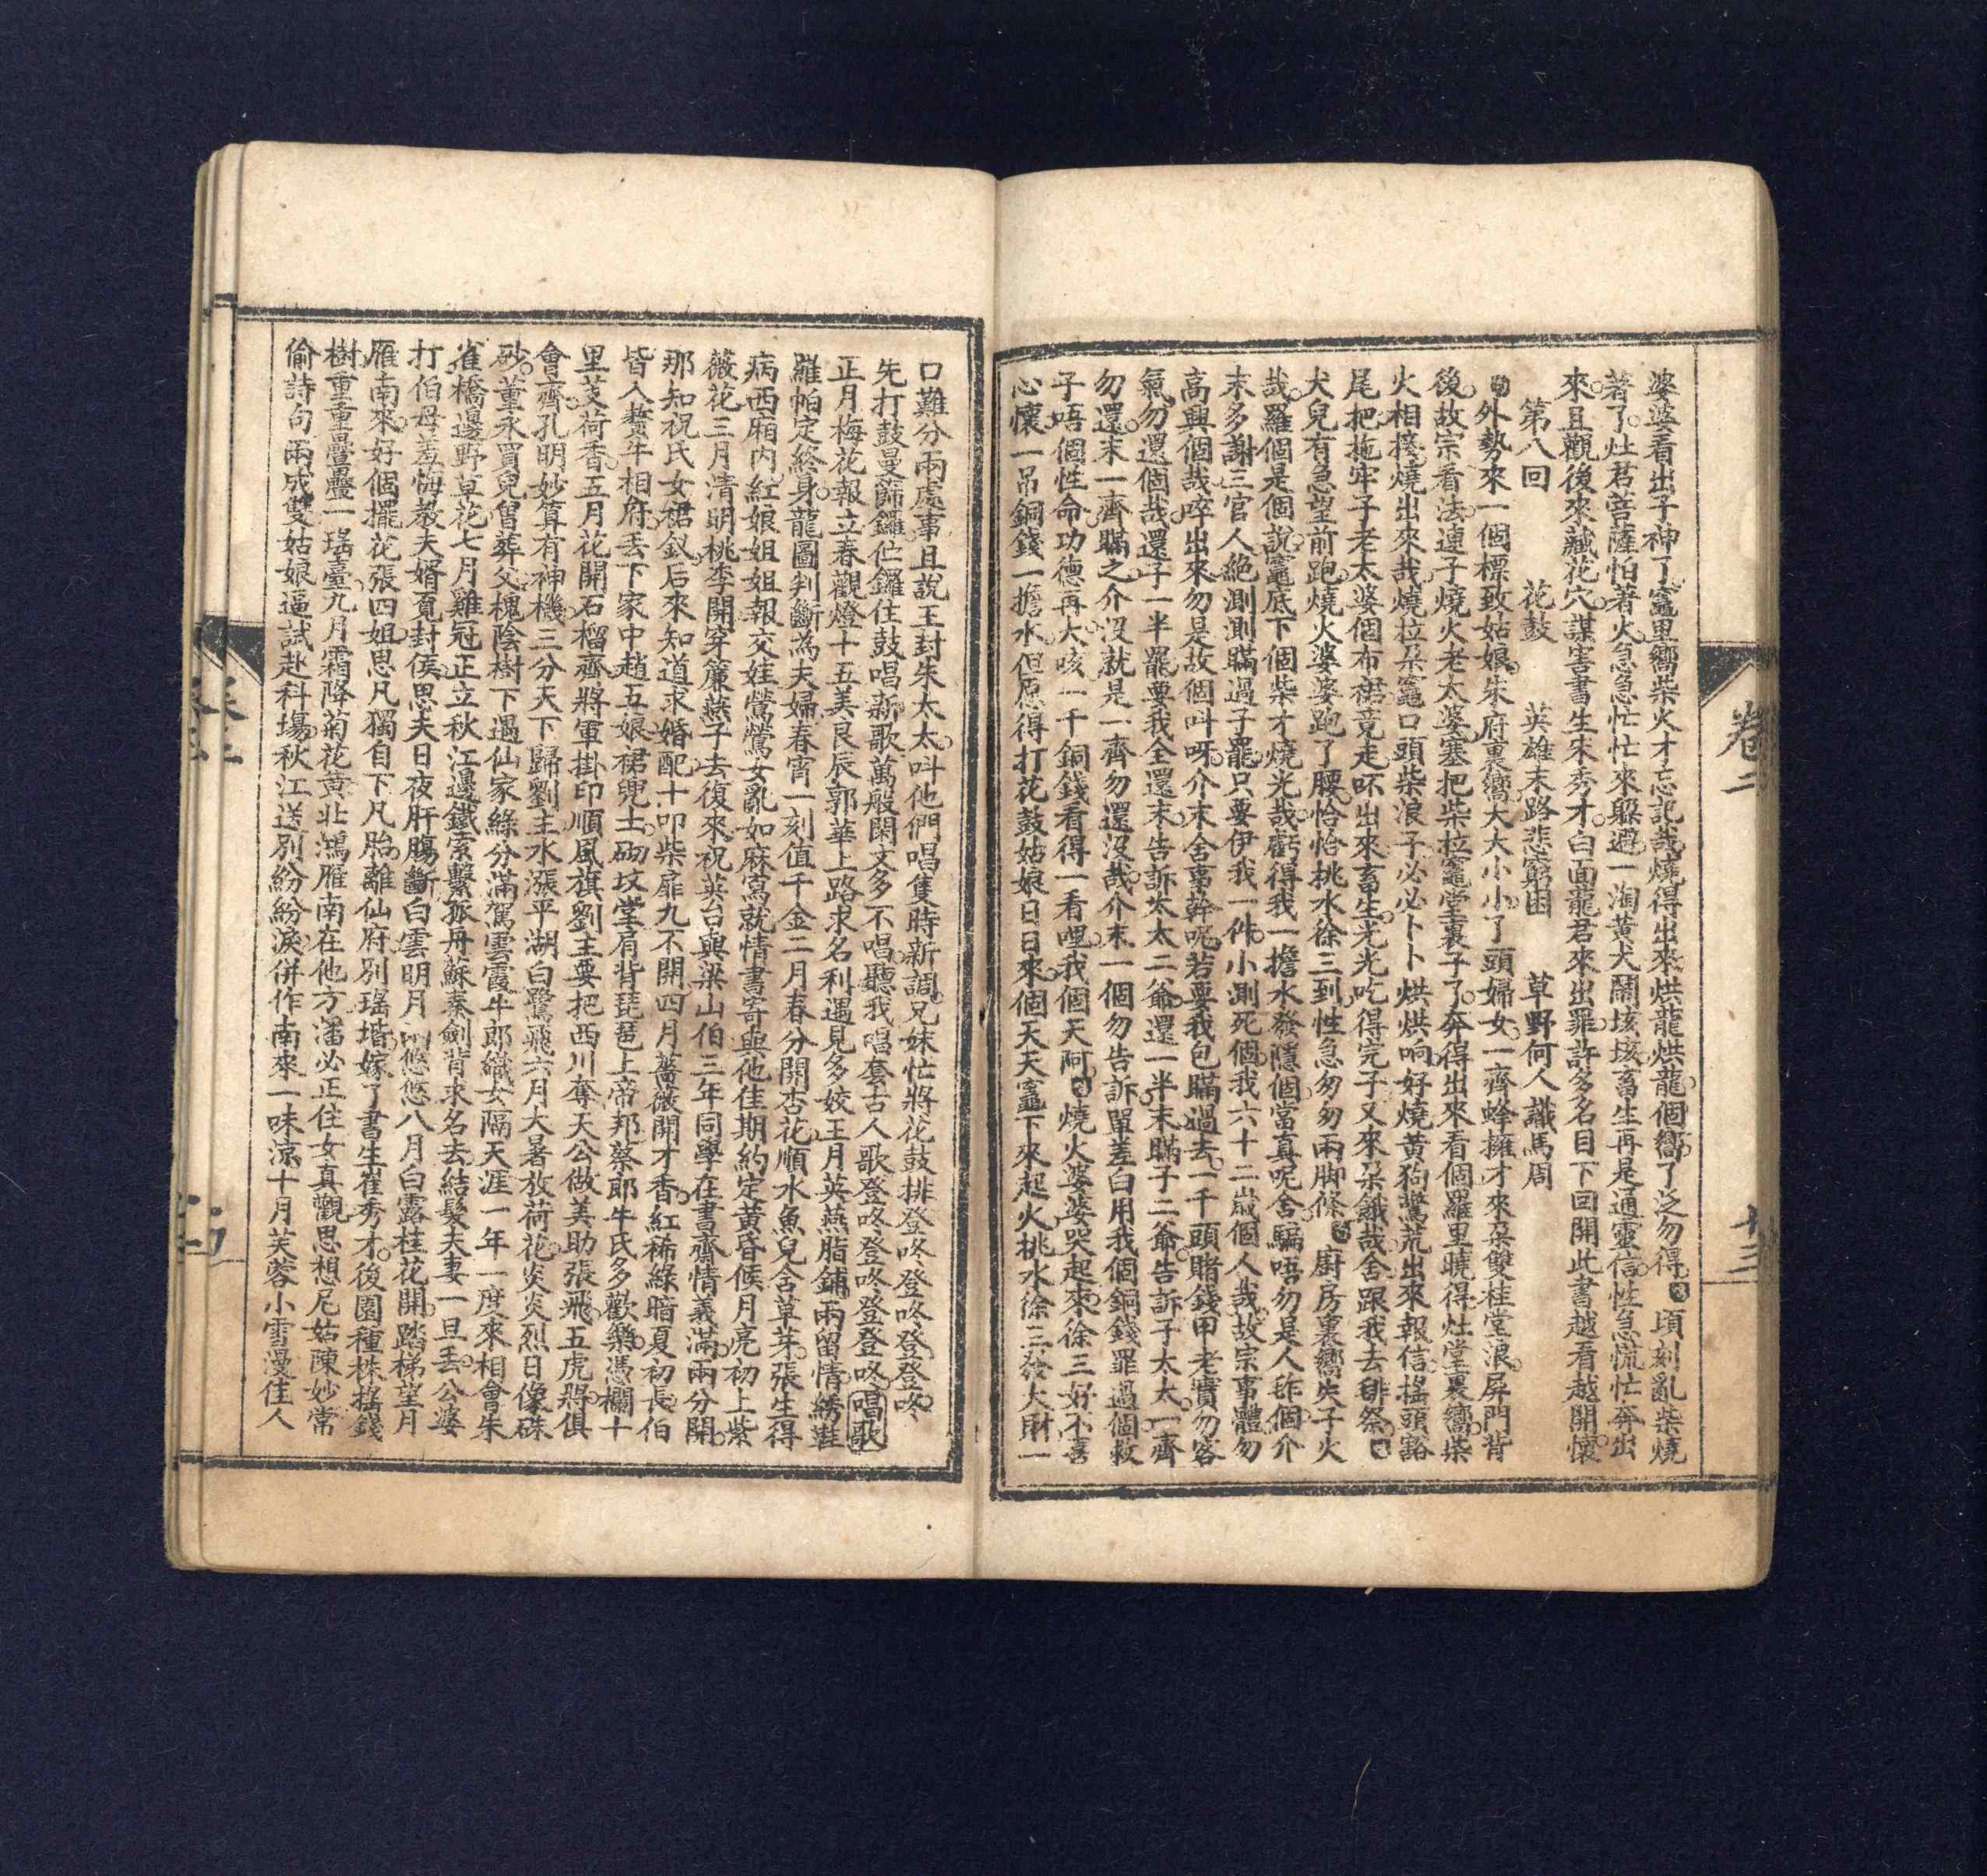 婆婆看出子神了竈里嚮柴火才忘記哉燒得出來烘龍烘龍個嚮了泛勿得 頃刻亂柴燒
著了灶君菩薩怕著火急急忙忙來躲避一淘黃犬鬧垓垓畜生再是通靈信性急慌忙奔出
來且觀後來藏花穴謀害書生宋秀才白面龍君來出罪許多名目下回開此書越看越開懷
第八回 花鼓 英雄末路悲窮困 草野何人識馬周
外勢來一個標致姑娘朱府裏嚮大大小小了頭婦女一齊蜂擁才來朶雙桂堂浪屏門背
後故宗看法連子燒火老太婆塞把柴拉竈堂裏子了奔得出來看個羅里曉得灶堂裏嚮柴
火相接燒出來哉燒拉朶竈口頭柴浪子必必卜卜烘烘响好燒黃狗驚荒出來報信搖頭豁
尾把拖牢子老太婆個布裙竟走呸出來畜生光光吃得完子又來朶餓哉舍跟我去祭
犬兒有急望前跑燒火婆婆跑了腰恰恰挑水徐三到性急匆匆兩脚條 廚房裏嚮失子火
哉羅個是個說竈底下個柴才燒光哉虧得我一擔水發隱個當真呢舍騙唔勿是人咋個介
末多謝三官人絶測測瞞過子罷只要伊我一件小測死個我六十二歲個人哉故宗事體勿
高興個哉啐出來勿是故個叫呀介末舍事幹呢若要我包瞞過去一千頭賭錢甲老實勿客
氣勿還個哉還子一半罷要我全還末告訴太太二爺還一半末瞞子二爺告訴子太太一齊
勿還末一齊瞞之介沒就是一齊勿還沒哉介末一個勿告訴單差白用我個銅錢罪過個救
子唔個性命功德再大咳一千銅錢看得一看哩我個天阿 燒火婆婆哭起來徐三好不喜
心懷一吊銅錢一擔水但愿得打花鼓姑娘日日來個天天竈下來起火挑水徐三發大財一
卷二
廿三
口難分兩處事且說王封朱太太叫他們唱隻時新調兄妹忙將花鼓排登咚登咚登登咚
先打鼓曼篩鑼伫鑼住鼓唱新歌萬般閑文多不唱聽我唱套古人歌登咚登咚登登咚唱歌
正月梅花報立春觀燈十五美艮辰郭華上路求名利遇見多姣王月英燕脂鋪兩留情綉鞋
羅帕定終身龍圖判斷為夫婦春宵一刻值千金二月春分開杏花順水魚兒含草芽張生得
病西廂內紅娘姐姐報交娃鶯鶯女亂如麻寫就情書寄與他佳期約定黃昏候月亮初上紫
薇花三月清明桃李開穿簾燕子去復來祝英台與梁山伯三年同學在書齋情義滿兩分開
那知祝氏女裙釵后來知道求婚配十叩柴扉九不開四月薔薇開才香紅稀綠暗夏初長伯
皆入贅牛相府丟下家中趙五娘裙兜土砌坟堂肩背琵琶上帝邦蔡郎牛氏多歡樂憑欄十
里芰荷香五月花開石榴齊將軍掛印順風旗劉王要把西川奪天公做美助張飛五虎將俱
會齊孔明妙算有神機三分天下歸劉主水漲平湖白鷺飛六月大暑放荷花炎炎烈日像硃
砂董永賣兒曾葬父槐陰樹下遇仙家綠分滿駕雲霞牛郎織女隔天涯一年一度來相會朱
雀橋邊野草花七月雞冠正立秋江邊鐵索繫孤舟蘇秦劍背求名去結髮夫妻一旦丟公婆
打伯母羞悔教夫婿覓封侯思夫日夜肝腸斷白雲明月 悠悠八月白露桂花開踏梯望月
雁南來好個擺花張四姐思凡獨自下凡胎離仙府別瑤堦嫁了書生崔秀才後園種株搖錢
樹重重疊疊一瑤臺九月霜降菊花黃北鴻雁南在他方潘必正住女真觀思想尼姑陳妙常
偷詩句兩成雙姑娘逼試赴科塲秋江送別紛紛淚併作南來一味涼十月芙蓉小雪漫佳人